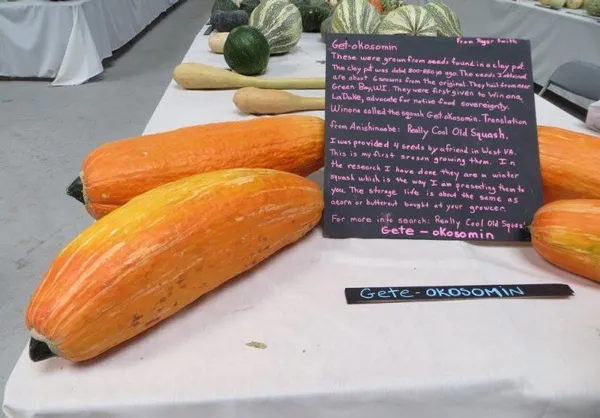 Get-okosomin From Roger Smith
These were grown from seeds found in a clay pot.
The clay pot was dated 800-880 yo ago. The seeds I obtained
are about 6 seasons from the original. They hail from near
Green Bay, WI. They were first given to Winona,
LaDuke, advocate for native food sovereignty.
Winona called the squash Get okosomin. Translation
from Anishinaabe: Really Cool Old Squash.
I was provided 4 seeds by a friend in West VA.
This is my first season growing them. In
the research I have done they are a winter
squash which is the way I am presenting them to
you. The storage life is about the same as
acorn or butternut bought at your grocer.
For more info search: Really Cool Old Squash
Gete-okosomin
Gete-OKOSOMIN